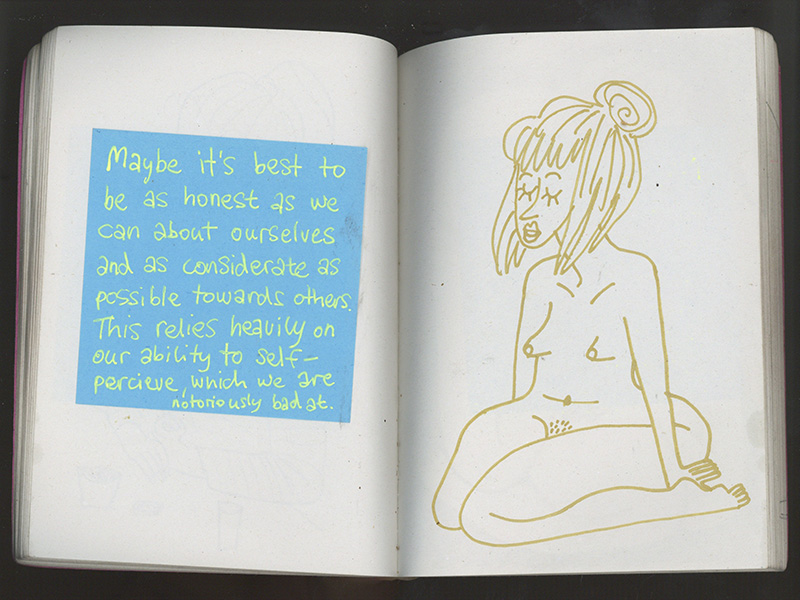 Maybe it's best to
be as honest as we
can about ourselves
and as considerate as
possible towards others.
This relies heavily on
our ability to self-
percieve, which we are
notoriously bad at.